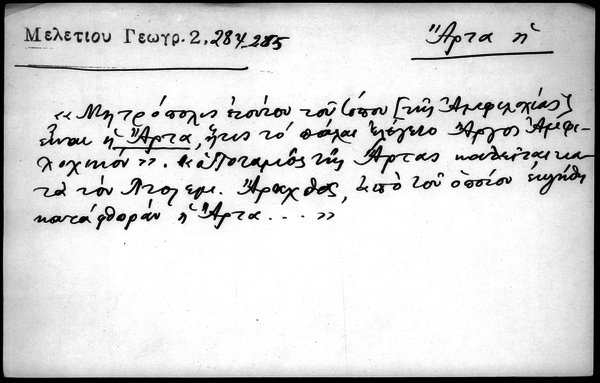 Μελετίου Γεωγρ. 2, 284-285
Ἄρτα ἡ
« Μητρόπολις ἐτούτου τοῦ τόπου [τῆς Ἀμφιλοχίας]
εἶναι ἡ Ἄρτα, ἥτις τό πάλαι ἐλέγετο Ἄργος Ἀμφι-
λοχικόν ». « ὁ Ποταμιός τῆς Ἄρτας καλεῖται κα-
τά τόν Πτολεμ. Ἄραχθος, ἀπό τοῦ ὁποίου ἐκλήθη
κατά φθοράν ἡ Ἄρτα . . . »